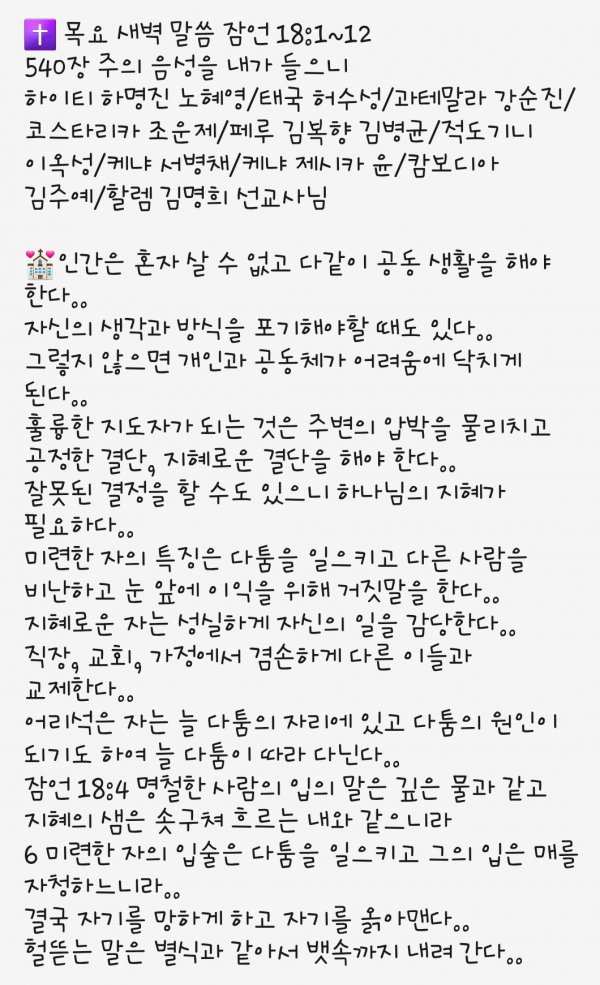 ✝️ 목요 새벽 말씀 잠언 18:1~12
540장 주의 음성을 내가 들으니
하이티 하명진 노혜영/태국 허수성/과테말라 강순진/
코스타리카 조운제/페루 김복향 김병균/적도기니
이옥성/케냐 서병채/케냐 제시카 윤/캄보디아
김주예/할렘 김명희 선교사님
💒인간은 혼자 살 수 없고 다같이 공동 생활을 해야
한다。。
자신의 생각과 방식을 포기해야할 때도 있다。。
그렇지 않으면 개인과 공동체가 어려움에 닥치게
된다。。
훌륭한 지도자가 되는 것은 주변의 압박을 물리치고
공정한 결단, 지혜로운 결단을 해야 한다。。
잘못된 결정을 할 수도 있으니 하나님의 지혜가
필요하다。。
미련한 자의 특징은 다툼을 일으키고 다른 사람을
비난하고 눈 앞에 이익을 위해 거짓말을 한다。。
지혜로운 자는 성실하게 자신의 일을 감당한다。。
직장, 교회, 가정에서 겸손하게 다른 이들과
교제한다。。
어리석은 자는 늘 다툼의 자리에 있고 다툼의 원인이
되기도 하여 늘 다툼이 따라 다닌다。。
잠언 18:4 명철한 사람의 입의 말은 깊은 물과 같고
지혜의 샘은 솟구쳐 흐르는 내와 같으니라
6 미련한 자의 입술은 다툼을 일으키고 그의 입은 매를
자청하느니라。。
결국 자기를 망하게 하고 자기를 옭아맨다。。
헐뜯는 말은 별식과 같아서 뱃속까지 내려 간다。。